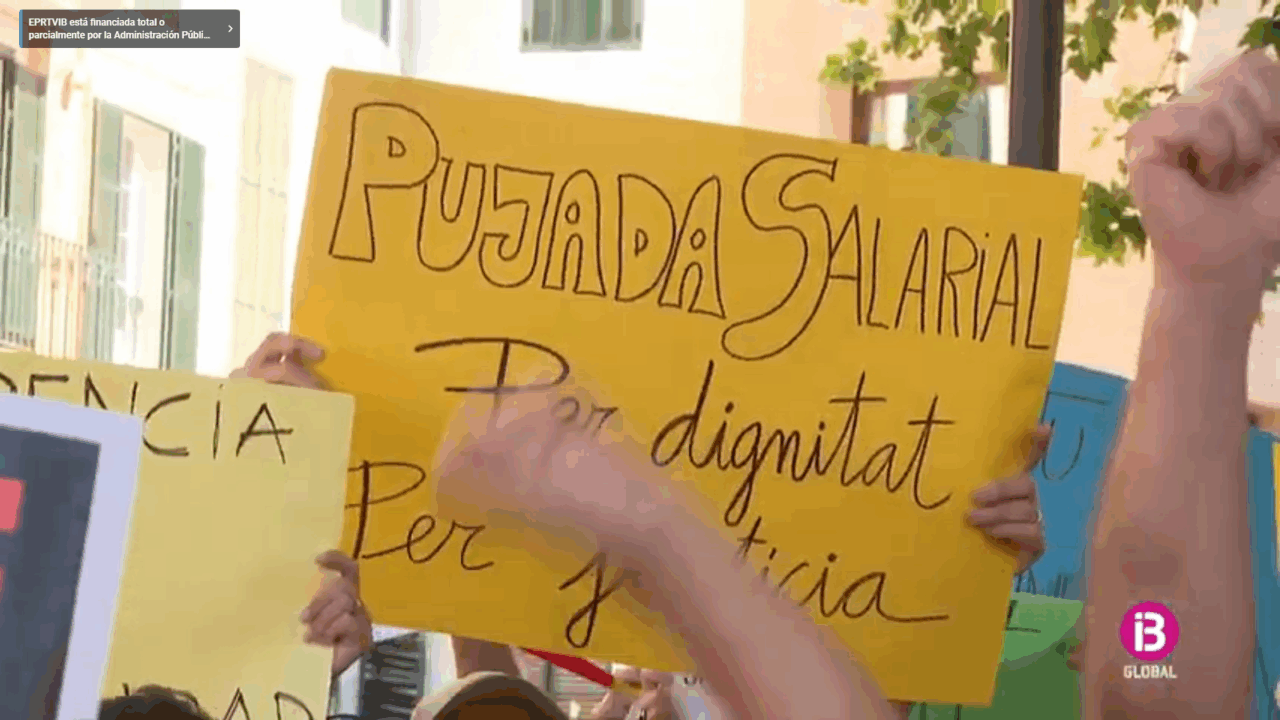 EPRTVIB está financiada total o
parcialmente por la Administración Públi...
PUJADA SALARIAL
Por dignitat
Per
IB
GLOBAL